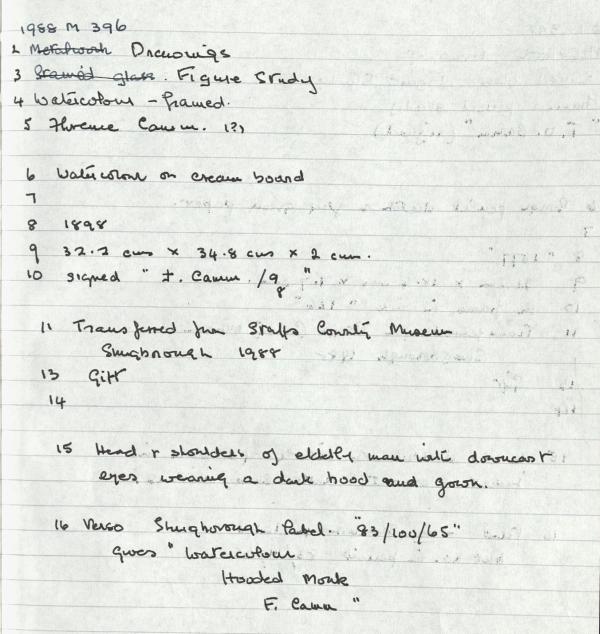 1988 M 396
2 Metalwork Drawings
3 Stained glass. Figure Study
4 Watercolour - framed.
5 Florence Camm. (?)
6 Watercolour on cream board
7
8 1898
9 32.2 cms x 34.8 cms x 2 cm.
10 signed " F. Camm /98 "
11 Transferred from Staffs County Museum
Shugborough 1988
13 Gift
14
15 Head & shoulders of elderly man with downcast
eyes wearing a dark hood and gown.
16 Verso Shugborough label. "83/100/65"
gives " Watercolour
Hooded Monk
F. Camm "